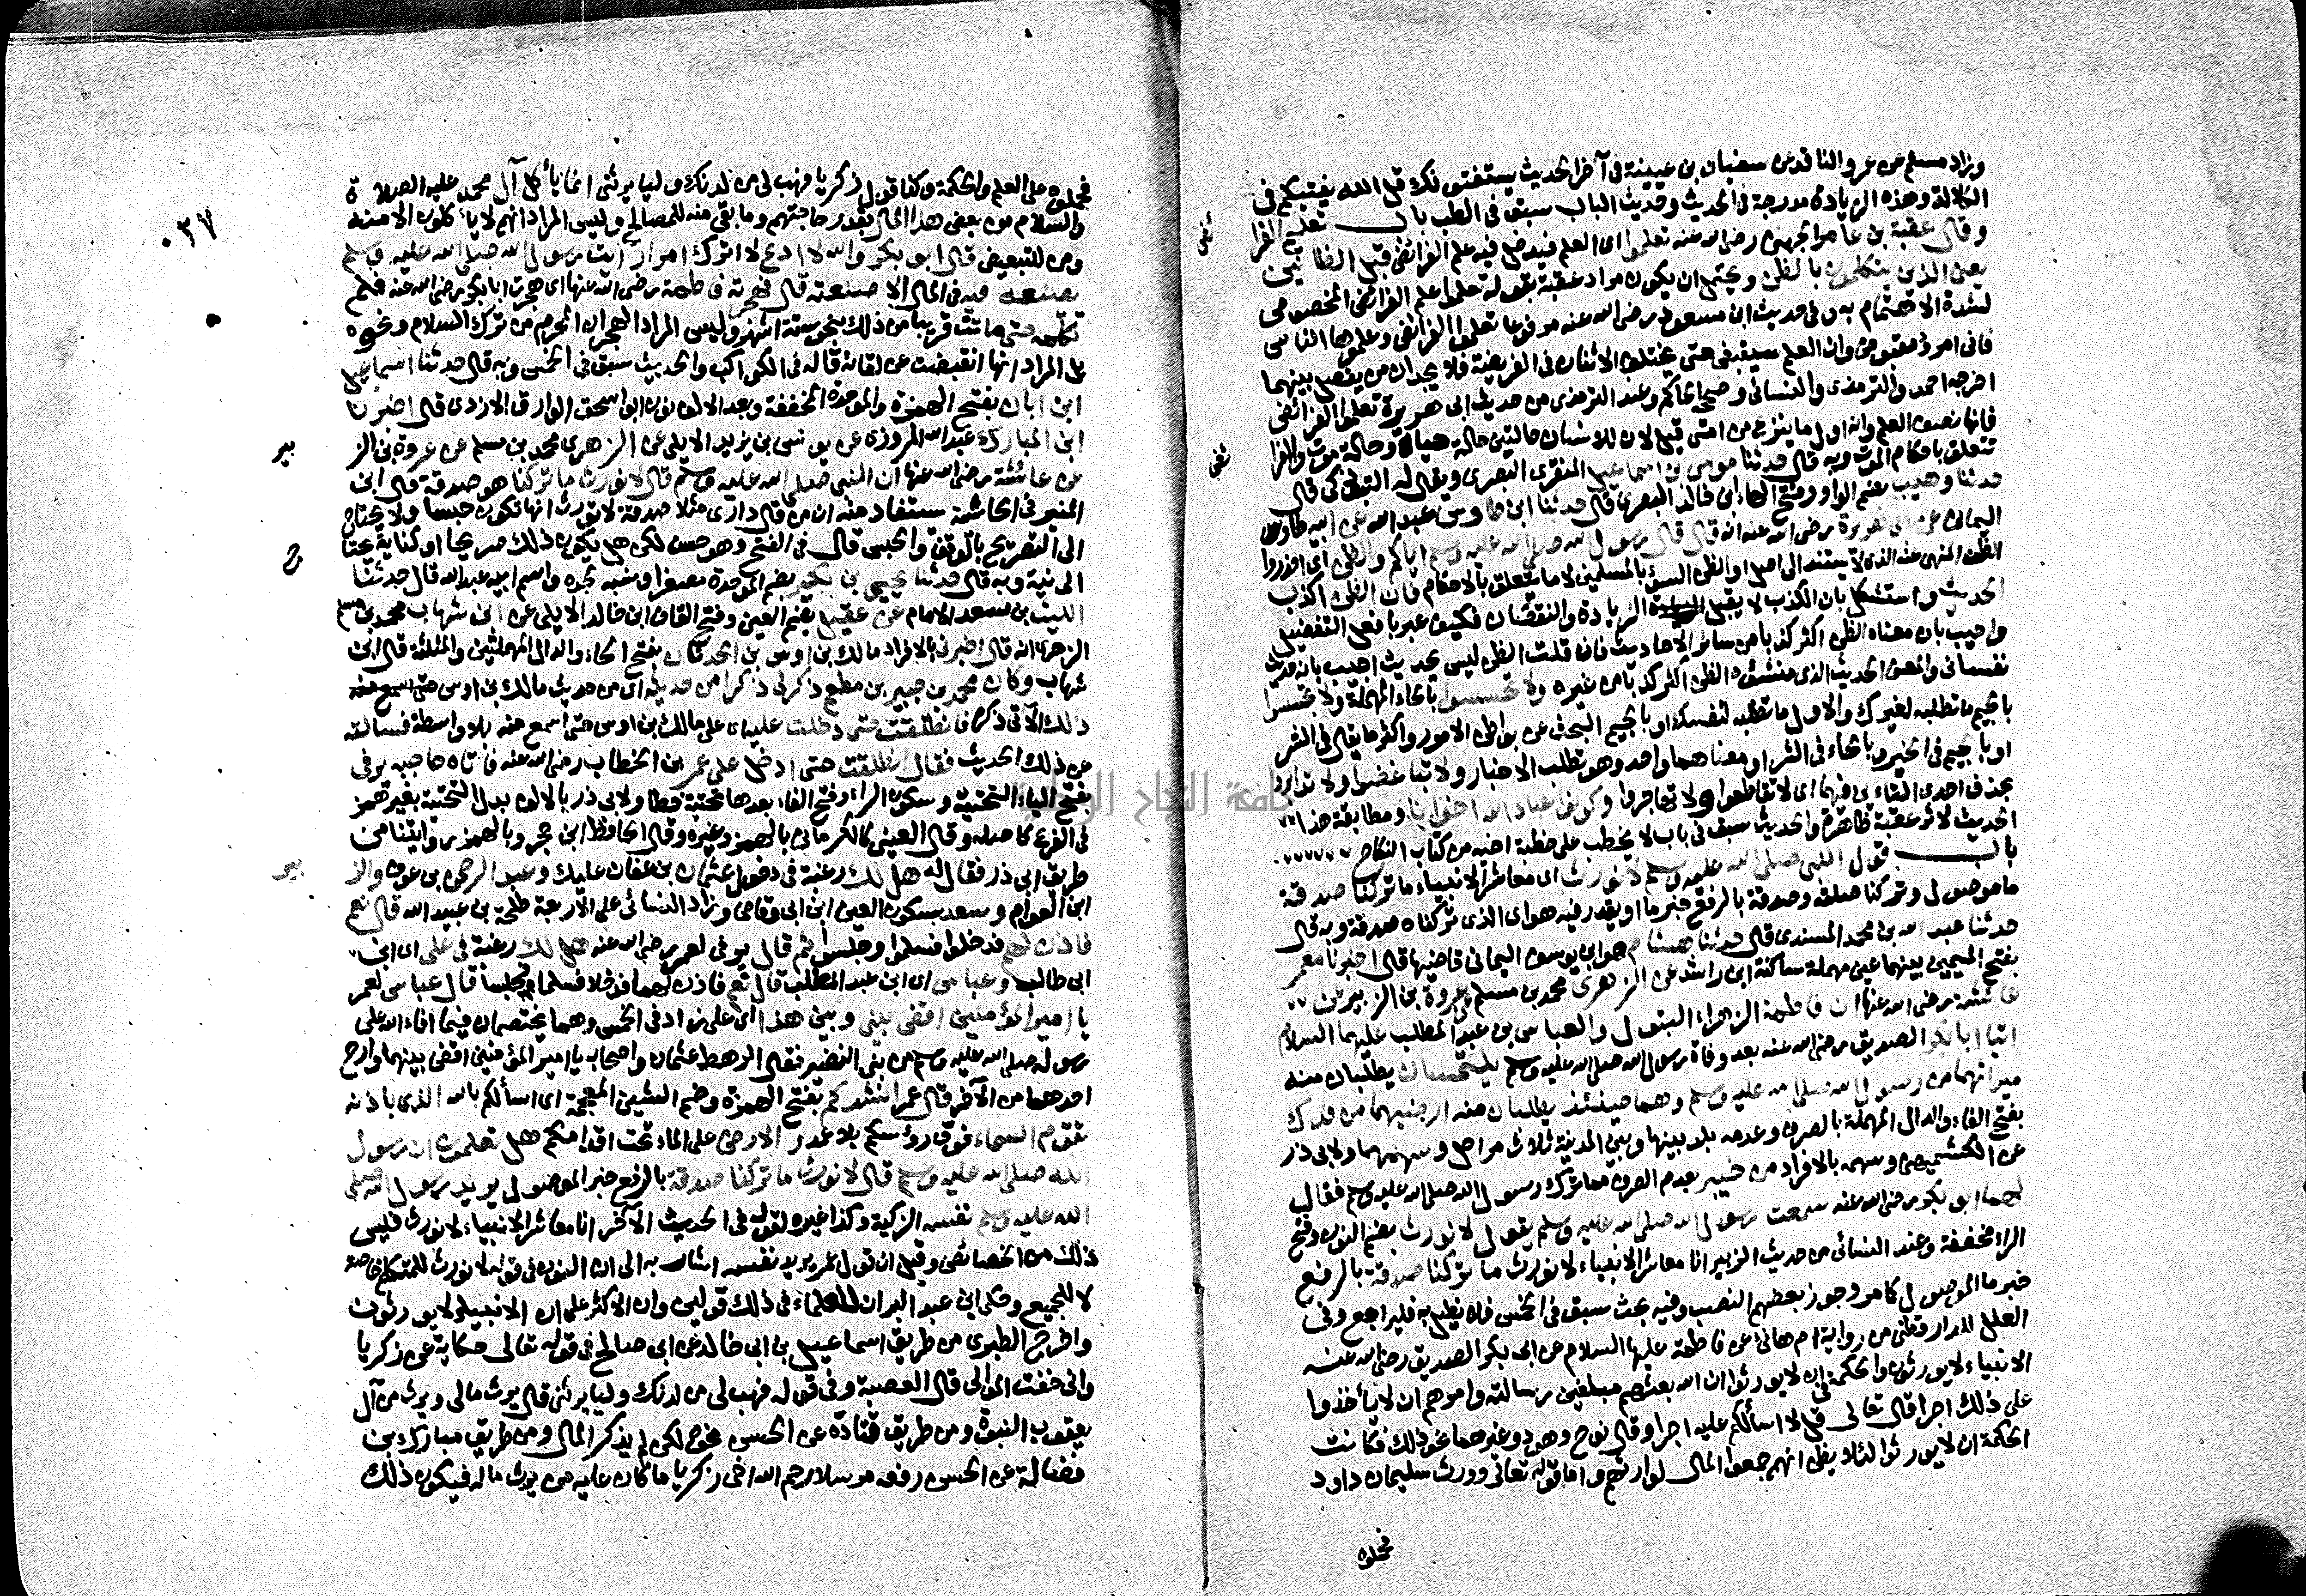 وزاد مسلم عن عمرو الناقد عن سفيان بن عيينة في آخر الحديث يستفتونك قل الله يفتيكم في
الكلالة وهذه الزيادة مدرجة في الحديث وحديث الباب سبق في الطب باب تعليم الفرا
ئض
وقال عقبة بن عامر الجهني رضي الله عنه تعلموا اي العلم فيدخل فيه علم الفرائض قبل الظانين
يعني الذين يتكلمون بالظن ويحتمل ان يكون مراد عقبة بقوله تعلموا علم الفرائض المخصوص
لشدة الاهتمام به وفي حديث ابن مسعود رضي الله عنه مرفوعا تعلموا الفرائض وعلموها الناس
فاني امرؤ مقبوض وان العلم سيقبض حتى يختلف الاثنان في الفريضة فلا يجدان من يفصل بينهما
اخرجه احمد والترمذي والنسائي وصححه الحاكم وعند الترمذي من حديث ابي هريرة تعلموا الفرائض
فانها نصف العلم وانه اول ما ينزع من امتي قيل لان للانسان حالتين حالة حياة وحالة موت والفرا
ئض
تتعلق باحكام الموت وبه قال حدثنا موسى بن اسماعيل المنقري البصري ويقال له التبوذكي قال
حدثنا وهيب بضم الواو وفتح الهاء ابن خالد البصري قال حدثنا ابن طاوس عبد الله عن ابيه طاوس
اليماني عن ابي هريرة رضي الله عنه انه قال قال رسول الله صلى الله عليه وسلم اياكم والظن اي احذروا
الظن المنهي عنه الذي لا يستند الى اصل او الظن السوء بالمسلمين لا ما يتعلق بالاحكام فان الظن اكذب
الحديث واستشكل بان الكذب لا يقبل الزيادة والنقصان فكيف عبر بافعل التفضيل
واجيب بان معناه الظن اكثر كذبا من سائر الاحاديث فان قلت الظن ليس بحديث اجيب بانه حديث
نفساني والمعنى الحديث الذي منشؤه الظن اكثر كذبا من غيره ولا تحسسوا بالحاء المهملة ولا تجسسوا
بالجيم ما تطلبه لغيرك والاول ما تطلبه لنفسك او بالجيم البحث عن بواطن الامور واكثر ما يقال في الشر
او بالجيم في الخير وبالحاء في الشر او معناهما واحد وهو تطلب الاخبار ولا تباغضوا ولا تدابروا
بحذف احدى التاءين فيهما اي لا تقاطعوا ولا تهاجروا وكونوا عباد الله اخوانا ومطابقة هذا
الحديث لاثر عقبة ظاهرة والحديث سبق في باب لا يخطب على خطبة اخيه من كتاب النكاح
باب قول النبي صلى الله عليه وسلم لا نورث اي معاشر الانبياء ما تركنا صدقة
ما موصول وتركنا صلته وصدقة بالرفع خبر ما او يقدر فيه هو اي الذي تركناه صدقة وبه قال
حدثنا عبد الله بن محمد المسندي قال حدثنا هشام هو ابن يوسف اليماني قاضيها قال اخبرنا معمر
بفتح الميمين بينهما عين مهملة ساكنة ابن راشد عن الزهري محمد بن مسلم عن عروة بن الزبير عن
عائشة رضي الله عنها ان فاطمة الزهراء البتول والعباس بن عبد المطلب عليهما السلام
اتيا ابا بكر الصديق رضي الله عنه بعد وفاة رسول الله صلى الله عليه وسلم يلتمسان يطلبان منه
ميراثهما من رسول الله صلى الله عليه وسلم وهما حينئذ يطلبان منه ارضيهما من فدك
بفتح الفاء والدال المهملة بالصرف وعدمه بلد بينها وبين المدينة ثلاث مراحل وسهمهما ولابي ذر
عن الكشميهني وسهمه بالافراد من خيبر بعدم الصرف مما ترك رسول الله صلى الله عليه وسلم فقال
لهما ابو بكر رضي الله عنه سمعت رسول الله صلى الله عليه وسلم يقول لا نورث بضم النون وفتح
الراء مخففة وعند النسائي من حديث الزبير انا معاشر الانبياء لا نورث ما تركنا صدقة بالرفع
خبر ما الموصول كما مر وجوز بعضهم النصب وفيه بحث سبق في الخمس فليراجع وفي
العلل للدارقطني من رواية ام هانئ عن فاطمة عليها السلام عن ابي بكر الصديق رضي الله عنه
الانبياء لا يورثون والحكمة في ان لا يورثوا ان الله بعثهم مبلغين رسالته وامرهم ان لا يأخذوا
على ذلك اجرا قال تعالى قل لا اسألكم عليه اجرا وقال نوح وهود وغيرهما نحو ذلك فكانت
الحكمة ان لا يورثوا لئلا يظن انهم جمعوا المال لوارثهم واما قوله تعالى وورث سليمان داود
فحملوه
٠٣٧
فحملوه على العلم والحكمة وكذا قول زكريا فهب لي من لدنك وليا يرثني انما يأكل آل محمد عليه الصلاة
والسلام من بعض هذا المال بقدر حاجتهم وما بقي منه للمصالح وليس المراد انهم لا يأكلون الا منه
ومن للتبعيض قال ابو بكر والله لا ادع لا اترك امرا رأيت رسول الله صلى الله عليه وسلم
يصنعه فيه في المال الا صنعته قال فهجرته فاطمة رضي الله عنها اي هجرت ابا بكر رضي الله عنه فلم
تكلمه حتى ماتت قريبا من ذلك بنحو ستة اشهر وليس المراد الهجران المحرم من ترك السلام ونحوه
بل المراد انها انقبضت عن لقائه قاله في الكواكب والحديث سبق في الخمس وبه قال حدثنا اسماعيل
ابن ابان بفتح الهمزة والموحدة المخففة وبعد الالف نون ابو اسحق الوراق الازدي قال اخبرنا
ابن المبارك عبد الله المروزي عن يونس بن يزيد الايلي عن الزهري محمد بن مسلم عن عروة بن الز
بير
عن عائشة رضي الله عنها ان النبي صلى الله عليه وسلم قال لا نورث ما تركنا هو صدقة قال ابن
المنير في الحاشية يستفاد منه ان من قال داري مثلا صدقة لا تورث انها تكون حبسا ولا يحتاج
الى التصريح بالوقف والحبس قال في الفتح وهو حسن لكن هل يكون ذلك صريحا او كناية يحتا
ج
الى نية وبه قال حدثنا يحيى بن بكير بضم الموحدة مصغرا ونسبه لجده واسم ابيه عبد الله قال حدثنا
الليث بن سعد الامام عن عقيل بضم العين وفتح القاف ابن خالد الايلي عن ابن شهاب محمد بن مسلم
الزهري انه قال اخبرني بالافراد مالك بن اوس بن الحدثان بفتح الحاء والدال المهملتين والمثلثة قال ابن
شهاب وكان محمد بن جبير بن مطعم ذكر لي ذكرا من حديثه اي من حديث مالك بن اوس
ذلك الآتي ذكره فانطلقت حتى دخلت عليه اي على مالك بن اوس حتى اسمع منه بلا واسطة فسالته
عن ذلك الحديث فقال انطلقت حتى ادخل على عمر بن الخطاب رضي الله عنه فاتاه حاجبه يرفى
بفتح الياء التحتية وسكون الراء وفتح الفاء بعدها تحتية خطا ولابي ذر بالالف بدل التحتية بغير همز
في الفرع كاصله وقال العيني كالكرماني بالهمز وغيره وقال الحافظ ابن حجر وبالهمز روايتنا من
طريق ابي ذر فقال له هل لك رغبة في دخول عثمان بن عفان عليك وعبد الرحمن بن عوف والز
بير
ابن العوام وسعد بسكون العين ابن ابي وقاص وزاد النسائي على الاربعة طلحة بن عبيد الله قال نعم
فاذن لهم فدخلوا فسلموا وجلسوا ثم قال يرفى لعمر رضي الله عنه هل لك رغبة في علي اي ابن
ابي طالب وعباس اي ابن عبد المطلب قال نعم فاذن لهما فدخلا فسلما وجلسا قال عباس لعمر
يا امير المؤمنين اقض بيني وبين هذا اي علي زاد في الخمس وهما يختصمان فيما افاء الله على
رسوله صلى الله عليه وسلم من بني النضير فقال الرهط عثمان واصحابه يا امير المؤمنين اقض بينهما وارح
احدهما من الآخر قال عمر انشدكم بفتح الهمزة وضم الشين المعجمة اي اسألكم بالله الذي باذنه
تقوم السماء فوق رؤسكم بلا عمد والارض على الماء تحت اقدامكم هل تعلمون ان رسول
الله صلى الله عليه وسلم قال لا نورث ما تركنا صدقة بالرفع خبر الموصول يريد رسول الله صلى
الله عليه وسلم نفسه الزكية وكذا غيره لقوله في الحديث الآخر انا معاشر الانبياء لا نورث فليس
ذلك من الخصائص وقيل ان قول عمر يريد نفسه اشار به الى ان النون في قوله لا نورث للمتكلم خاصة
لا للجميع وحكى ابن عبد البر ان للعلماء في ذلك قولين وان الاكثر على ان الانبياء لا يورثون
واخرج الطبري من طريق اسماعيل بن ابي خالد عن ابي صالح في قوله تعالى حكاية عن زكريا
واني خفت الموالي قال العصبة وفي قوله فهب لي من لدنك وليا يرثني قال يرث مالي ويرث من آل
يعقوب النبوة ومن طريق قتادة عن الحسن نحوه لكن لم يذكر المال ومن طريق مبارك بن
فضالة عن الحسن رفعه مرسلا رحم الله اخي زكريا ما كان عليه من يرث ماله فيكون ذلك